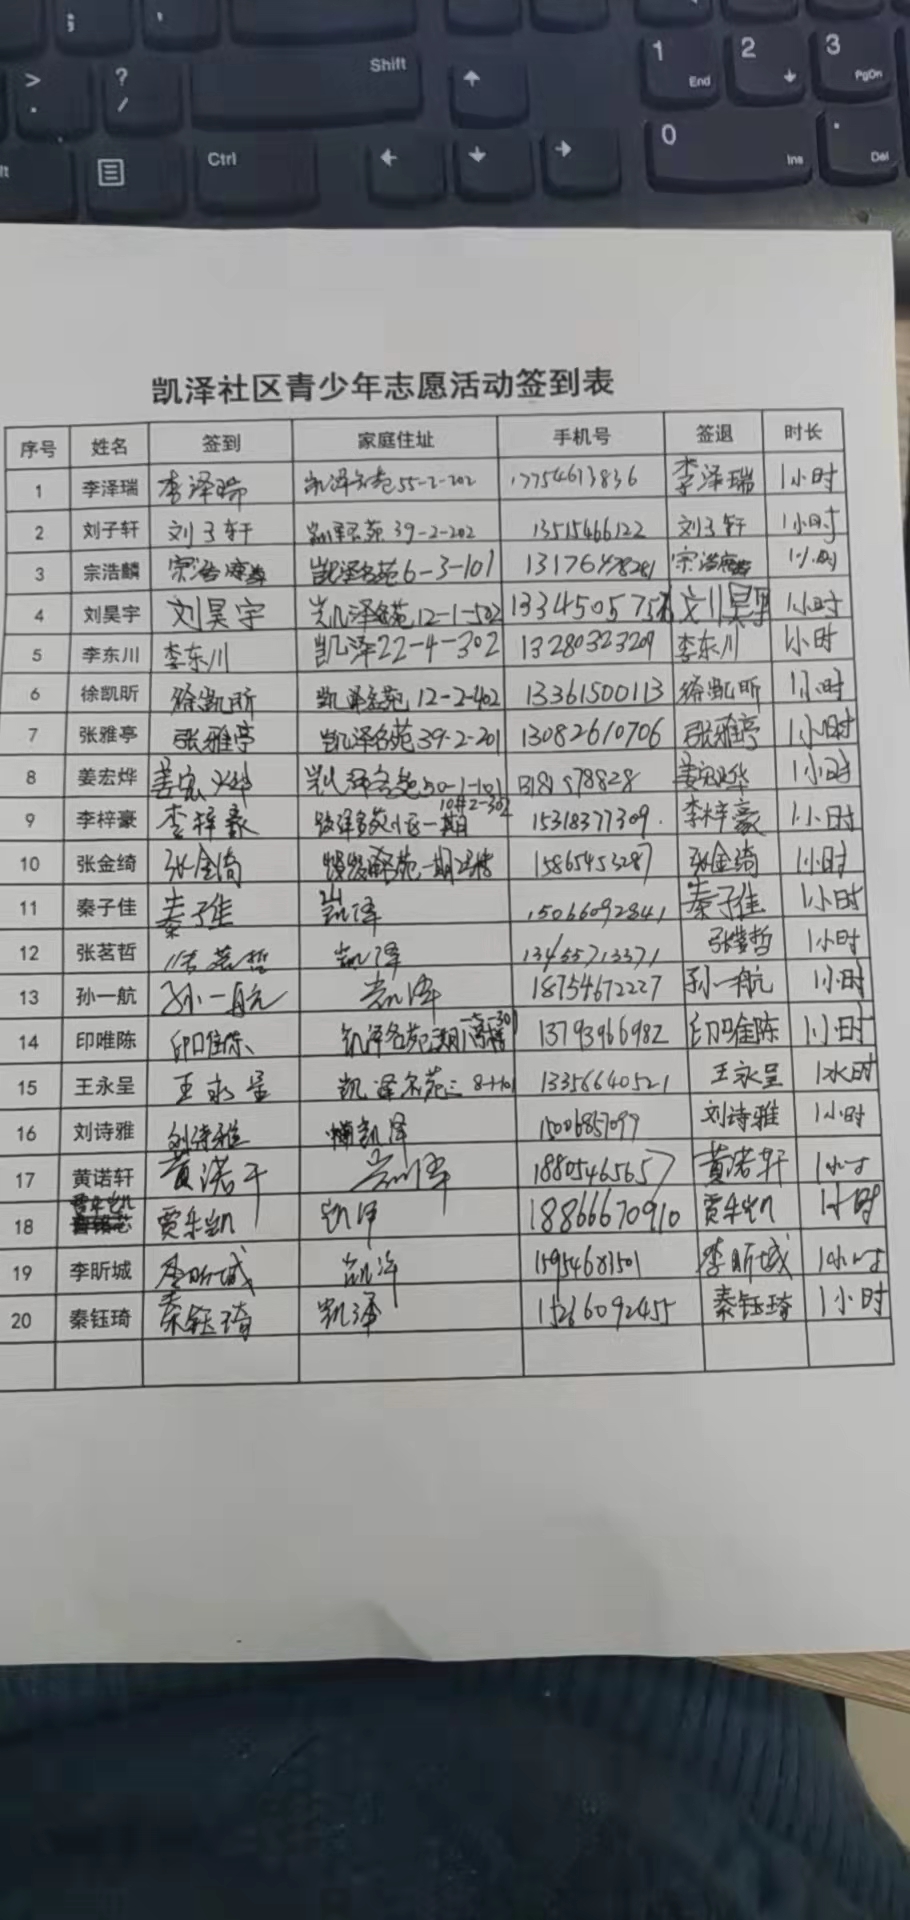 ; '
> . ? / Shift ↑ 1 End 2 ↓ 3 PgDn
Ctrl ← ↓ → 0 Ins . Del
凯泽社区青少年志愿活动签到表
序号 姓名 签到 家庭住址 手机号 签退 时长
1 李泽瑞 李泽瑞 凯泽名苑55-2-202 17754613836 李泽瑞 1小时
2 刘子轩 刘子轩 凯泽名苑 39-2-202 13515466122 刘子轩 1小时
3 宗浩麟 宗浩麟 凯泽名苑6-3-101 宗浩麟 1小时
4 刘昊宇 刘昊宇 凯泽名苑12-1-502 刘昊宇 1小时
5 李东川 李东川 凯泽22-4-302 13280323209 李东川 1小时
6 徐凯昕 徐凯昕 凯泽名苑 12-2-402 13361500113 徐凯昕 1小时
7 张雅亭 张雅亭 凯泽名苑39-2-201 13082610706 张雅亭 1小时
8 姜宏烨 姜宏烨 凯泽名苑50-1-101 姜宏烨 1小时
9 李梓豪 李梓豪 一期10#2-302 15318377309. 李梓豪 1小时
10 张金绮 张金绮 15865453287 张金绮 1小时
11 秦子佳 秦子佳 凯泽 15066092841 秦子佳 1小时
12 张茗哲 张茗哲 凯泽 13455713371 张茗哲 1小时
13 孙一航 孙一航 凯泽 18754672227 孙一航 1小时
14 印唯陈 印唯陈 凯泽名苑 13793966982 印唯陈 1小时
15 王永呈 王永呈 凯泽名苑 8-1-101 13356640521 王永呈 1小时
16 刘诗雅 刘诗雅 凯泽 15006857099 刘诗雅 1小时
17 黄诺轩 黄诺干 凯泽 18805465657 黄诺轩 1小时
18 贾乐凯 贾乐凯 凯泽 18866670910 贾乐凯 1小时
19 李昕城 李昕城 凯泽 15954683501 李昕城 1小时
20 秦钰琦 秦钰琦 凯泽 15216092455 秦钰琦 1小时